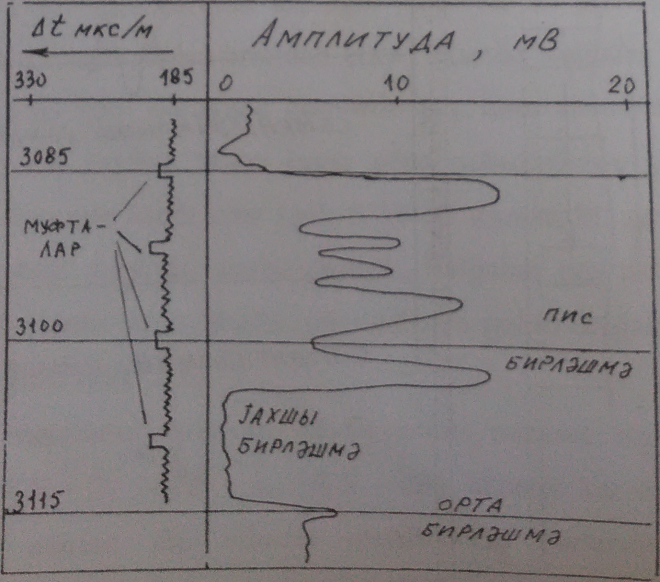 Δt мкс/м
АМПЛИТУДА, мВ
330
185
0
10
20
3085
МУФТА-
ЛАР
3100
ПИС
БИРЛӘШМӘ
ЈАХШЫ
БИРЛӘШМӘ
3115
ОРТА
БИРЛӘШМӘ